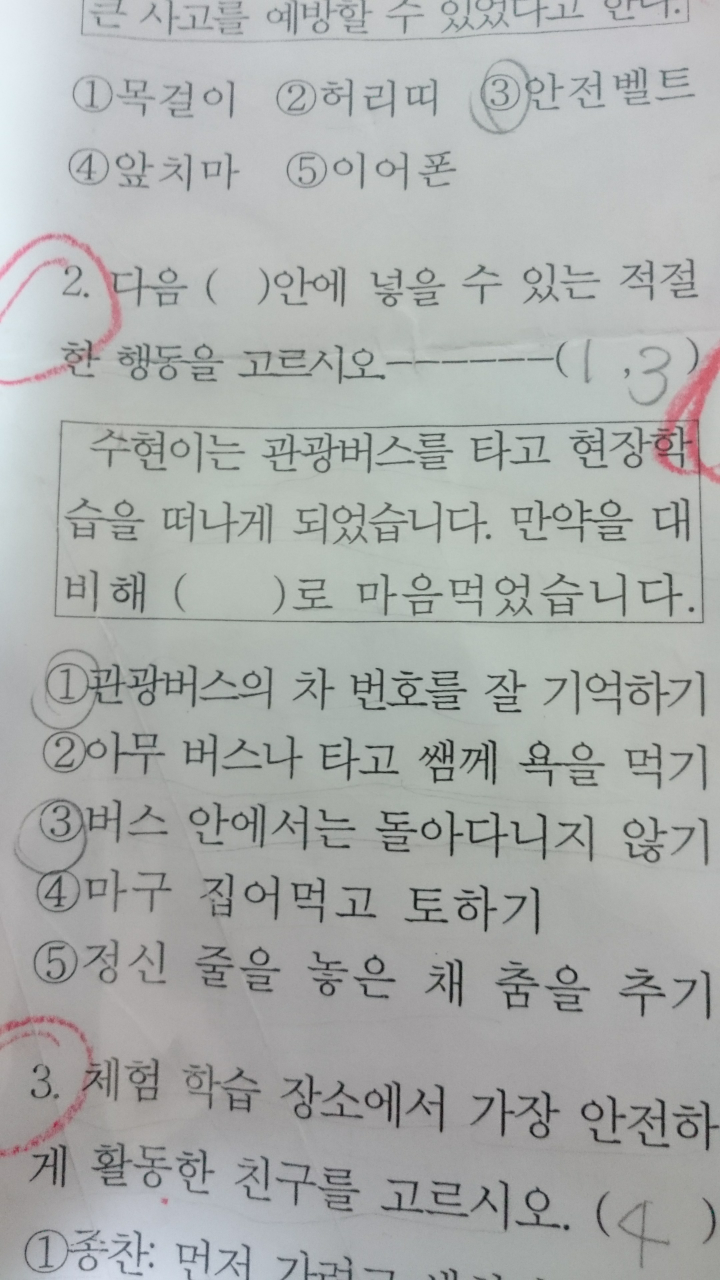 큰 사고를 예방할 수 있었다고 한다.
①목걸이 ②허리띠 ③안전벨트
④앞치마 ⑤이어폰
2. 다음 ( )안에 넣을 수 있는 적절
한 행동을 고르시오-------(1 ,3 )
수현이는 관광버스를 타고 현장학
습을 떠나게 되었습니다. 만약을 대
비해 ( )로 마음먹었습니다.
①관광버스의 차 번호를 잘 기억하기
②아무 버스나 타고 쌤께 욕을 먹기
③버스 안에서는 돌아다니지 않기
④마구 집어먹고 토하기
⑤정신 줄을 놓은 채 춤을 추기
3. 체험 학습 장소에서 가장 안전하
게 활동한 친구를 고르시오. (4 )
①종찬: 먼저 가려고